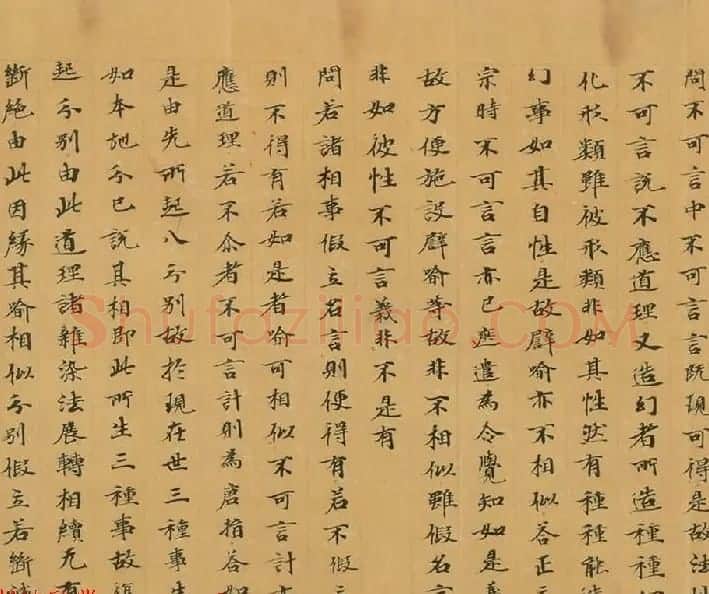 問不可言中不可言言既現可得是故法
不可言說不應道理又造幻者所造種種
化形類雖彼形類非如其性然有種種能
幻事如其自性是故譬喻亦不相似答正
宗時不可言言亦已應遣為令覺知如是
故方便施設譬喻等故非不相似雖假名言
非如彼性不可言義非不是有
問若諸相事假立名言則便得有若不假
則不得有若如是者喻可相似不可言計
應道理若不尒者不可言計則為唐捐答如
是由先所起八分別故於現在世三種事生
如本地分已說其相即此所生三種事故
起分別由此道理諸雜染法展轉相續无有
斷絕由此因緣其喻相似分別假立若斷
Shufaziliao.COM